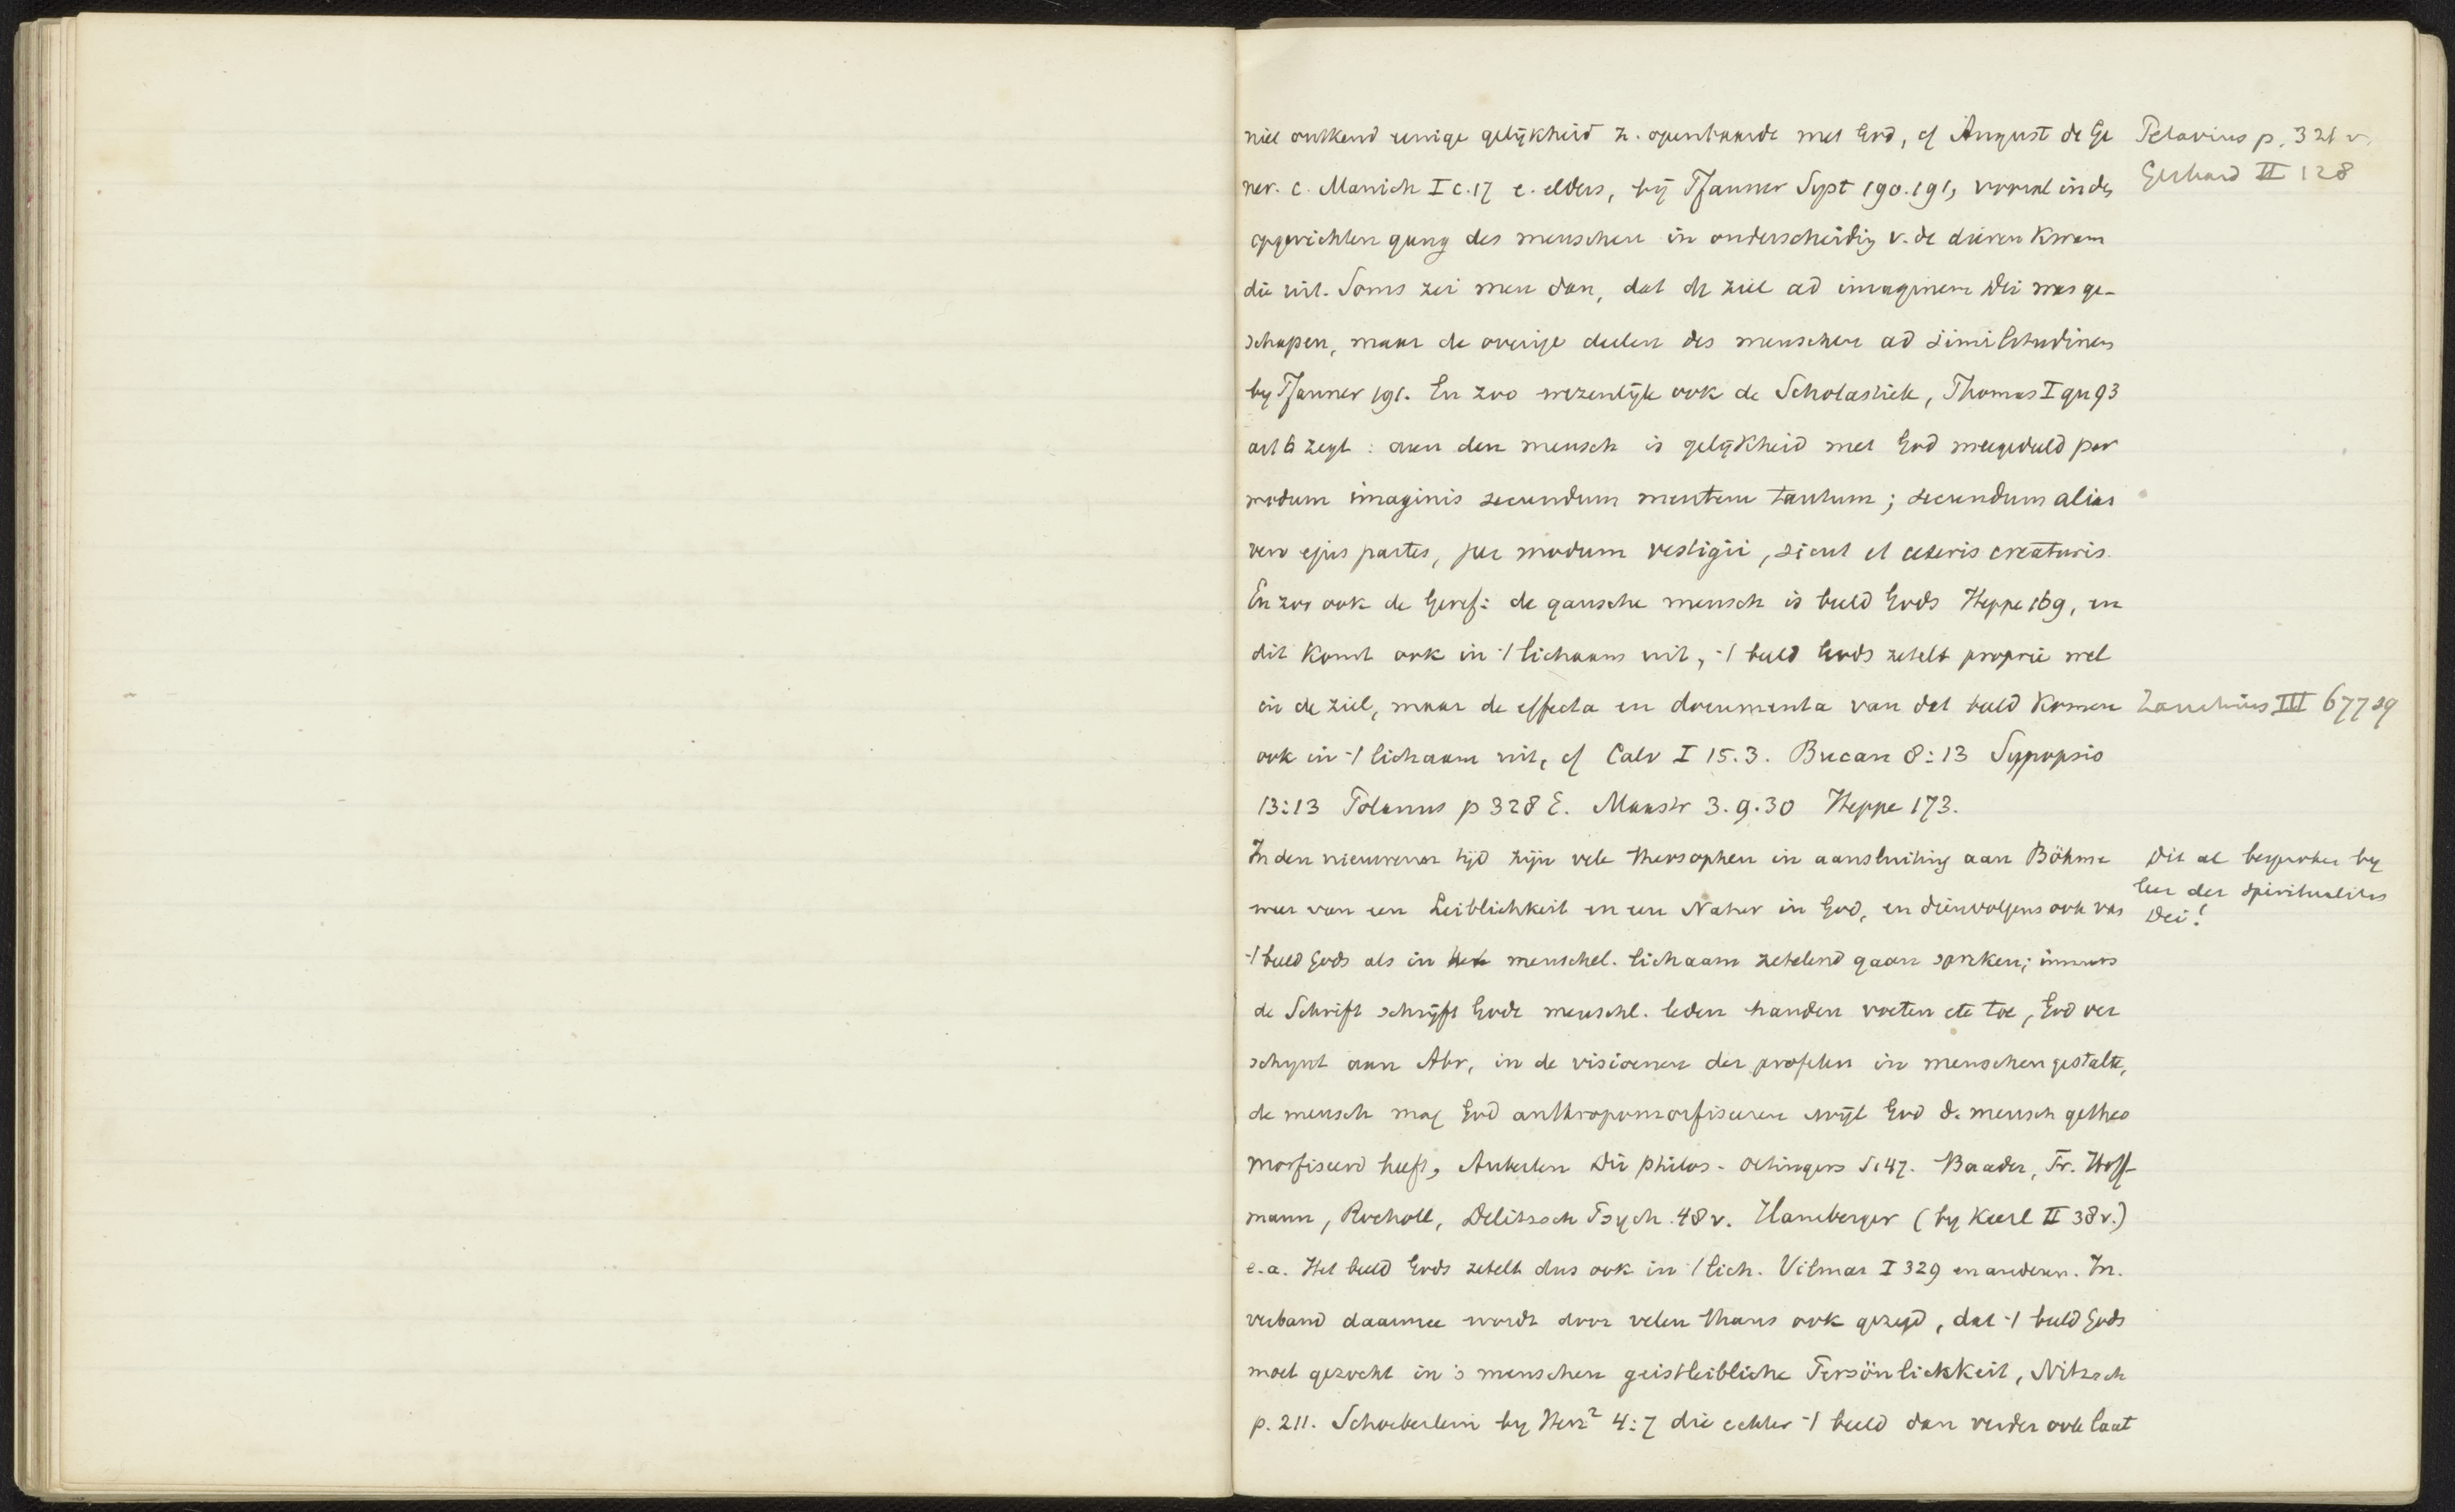 niet ontkend eenige gelijkheid z. openbaarde met God, cf August de Ge
ner. c. Manich I c.17 e. elders, bij Pfanner Syst 190.191, vooral in den
opgerichten gang des menschen in onderscheidig v. de dieren kwam
die uit. Soms zei men dan, dat de ziel ad imaginem Dei was ge-
schapen, maar de overige deelen des menschen ad similitudinem
by Pfanner 191. En zoo wezenlijk ook de Scholastiek, Thomas I qu 93
art 6 zegt: aan den mensch is gelijkheid met God meegedeeld per
modum imaginis secundum mentem tantum; secundum alias
vero ejus partes, per modum vestigii, sicut et ceteris creaturis.
En zoo ook de Geref: de gansche mensch is beeld Gods Heppe 169, en
dit komt ook in 't lichaam uit, 't beeld Gods zetelt proprie wel
in de ziel, maar de effecta en documenta van dat beeld komen
ook in 't lichaam uit, cf Calv I 15.3. Bucan 8:13 Synopsis
13:13 Polanus p 328 E. Mastr 3.9.30 Heppe 173.
In den nieuweren tijd zijn vele theosophen in aansluiting aan Böhme
weer van een Leiblichkeit en een Natur in God, en dienvolgens ook van
't beeld Gods als in het menschel. lichaam zetelend gaan spreken; immers
de Schrift schrijft Gode menschl. leden handen voeten etc toe, God ver
schynt aan Abr, in de visioenen der profeten in menschengestalte,
de mensch mag God anthropomorfiseeren wijl God d. mensch getheo
morfiseerd heeft, Auberlen Die philos. Oetingers S.147. Baader, Fr. Hoff-
mann, Rocholl, Delitzsch Psych. 48 v. Haneberger (by Keerl II 38 v.)
e.a. Het beeld Gods zetelt dus ook in 't lich. Vilmar I 329 en anderen. In
verband daarmee wordt door velen thans ook gezegd, dat 't beeld Gods
moet gezocht in 's menschen geistleibliche Persönlichkeit, Nitzsch
p. 211. Schoeberlein by Herz² 4:7 die echter 't beeld dan verder ook laat
Petavius p. 321 v.
Gerhard II 128
Zanchius III 677 sq
Dit al besproken by
leer der spiritualitas
Dei!